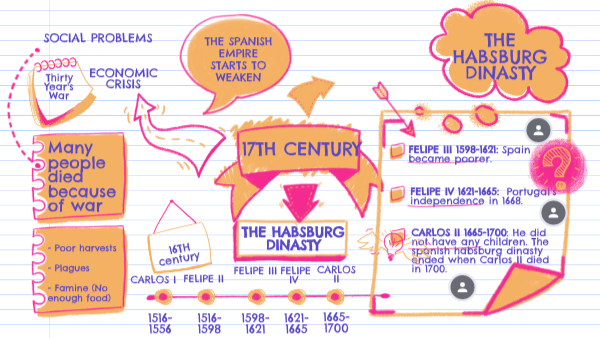 SOCIAL PROBLEMS
Thirty
Year's
War
ECONOMIC
CRISIS
THE SPANISH
EMPIRE
STARTS TO
WEAKEN
THE
HABSBURG
DINASTY
Many
people
died
because
of war
17TH CENTURY
THE HABSBURG
DINASTY
- Poor harvests
- Plagues
- Famine (No
enough food)
16TH
century
CARLOS I
FELIPE II
FELIPE III
FELIPE
IV
CARLOS
II
1516-
1556
1516-
1598
1598-
1621
1621-
1665
1665-
1700
FELIPE III 1598-1621: Spain
became poorer.
FELIPE IV 1621-1665: Portugal's
independence in 1668.
CARLOS II 1665-1700: He did
not have any children. The
spanish habsburg dinasty
ended when Carlos II died
in 1700.
?